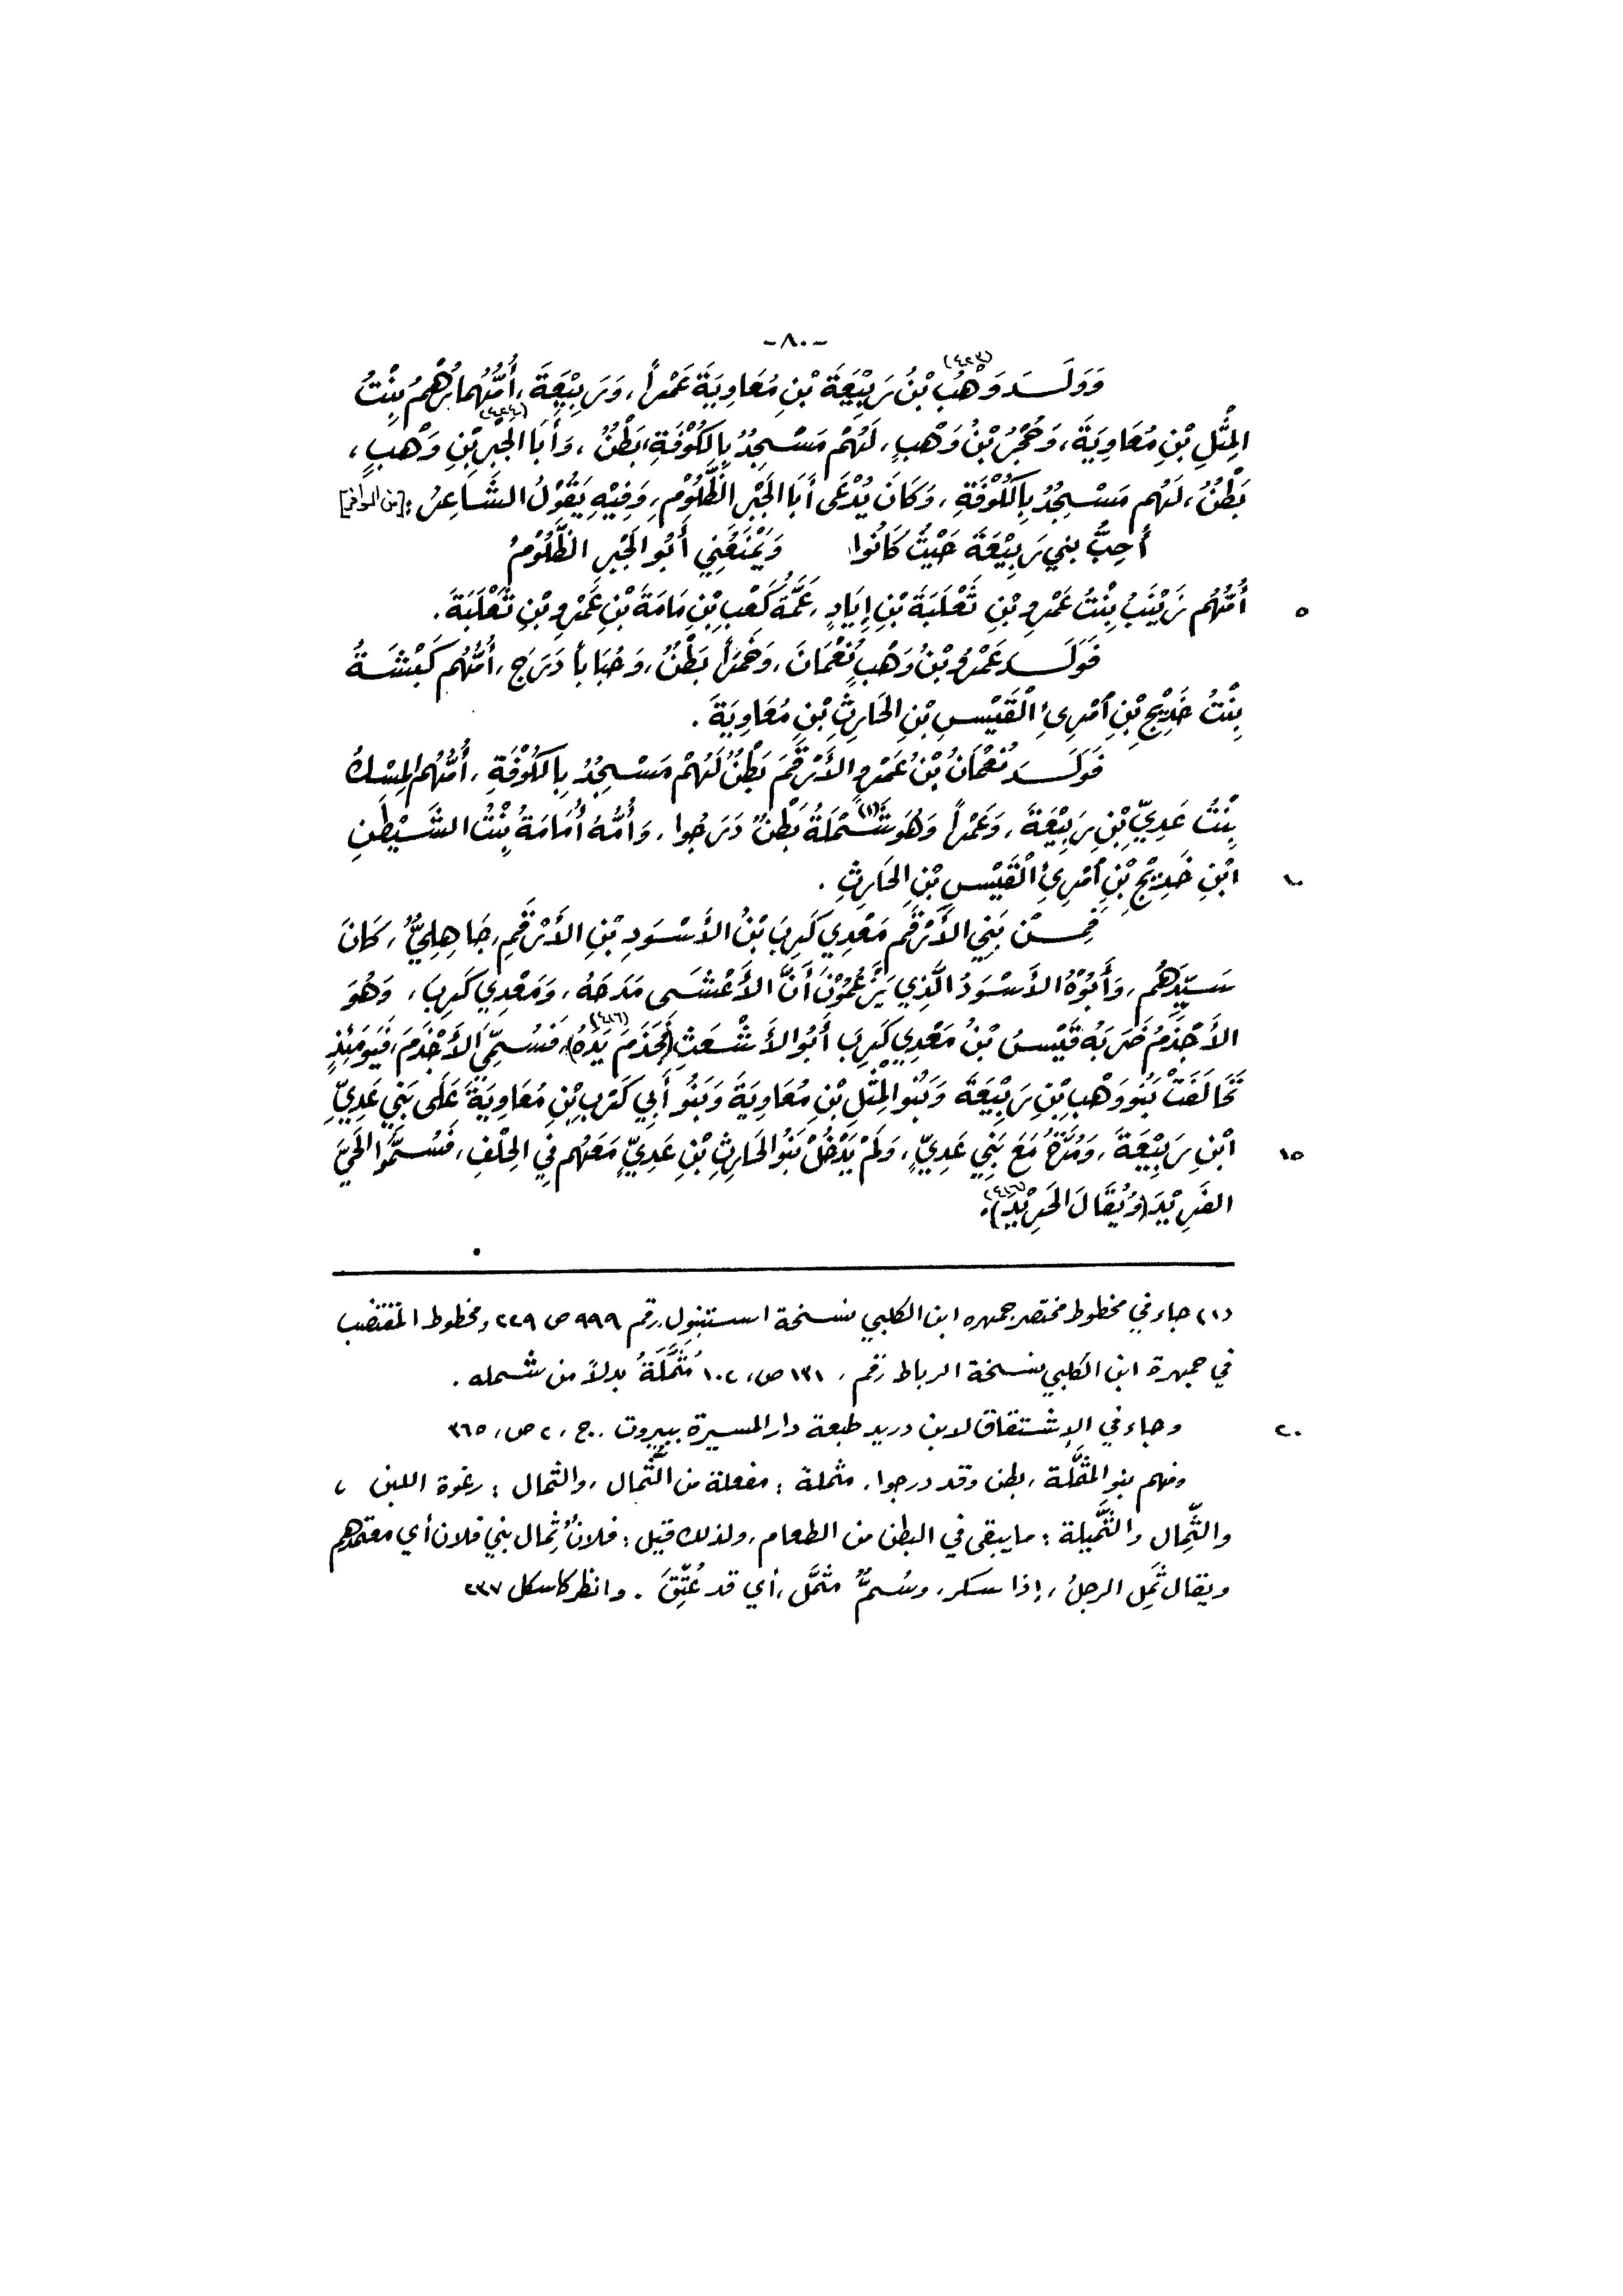 -٨٠-
وَوَلَـدَ وَهْبُ (٤٢٣) بْنُ رَبِيْعَةَ بْنِ مُعَاوِيَةَ عَمْراً، وَرَبِيْعَةَ، أُمُّهُمَا رُهْمُ بِنْتُ
المِثْلِ بْنِ مُعَاوِيَةَ، وَحُجْرُ بْنُ وَهْبٍ، لَهُمْ مَسْجِدُ بِالكُوْفَةِ، بَطْنٌ، وَأَبَا الجَبْرِ (٤٢٤) بْنِ وَهْبٍ،
بَطْنٌ، لَهُم مَسْجِدُ بِالكُوْفَةِ، وَكَانَ يُدْعَى أَبَا الجَبْرِ الظَّلُوْمِ، وَفِيْهِ يَقُوْلُ الشَّاعِرُ: [من الوافر]
أُحِبُّ بني رَبِيْعَةَ حَيْثُ كَانُوا وَيَمْنَعُنِي أَبُو الجَبْرِ الظَّلُوْمُ
أُمُّهُم زَيْنَبُ بِنْتُ عَمْرِو بْنِ ثَعْلَبَةَ بْنِ إِيَادٍ، عَمَّةُ كَعْبِ بْنِ مَامَةَ بْنِ عَمْرِو بْنِ ثَعْلَبَةَ. ٥
فَوَلَـدَ عَمْرُو بْنُ وَهْبٍ نُعْمَانَ، وَخَمَراً بَطْنٌ، وَحُبَاباً دَرَجَ، أُمُّهُم كَبْشَةُ
بِنْتُ خَدِيْجِ بْنِ امْرِئِ القَيْسِ بْنِ الحَارِثِ بْنِ مُعَاوِيَةَ.
فَوَلَـدَ نُعْمَانُ بْنُ عَمْرٍو الأَرْقَمَ بَطْنٌ لَهُمْ مَسْجِدُ بِالكُوْفَةِ، أُمُّهُم المِسْكُ
بِنْتُ عَدِيِّ بْنِ رَبِيْعَةَ، وَعَمْراً وَهُوَ شَمْلَةُ (١) بَطْنٌ دَرَجُوا، وَأُمُّهُ أُمَامَةُ بِنْتُ الشَّيْطَنِ
ابْنِ خَدِيْجِ بْنِ امْرِئِ القَيْسِ بْنِ الحَارِثِ. ١٠
فَمِـنْ بَنِي الأَرْقَمِ مَعْدِي كَرِبَ بْنُ الأَسْوَدِ بْنِ الأَرْقَمِ، جَاهِلِيٌّ، كَانَ
سَيِّدَهُم، وَأَبُوْهُ الأَسْوَدُ الَّذِي يَزْعُمُوْنَ أَنَّ الأَعْشَى مَدَحَهُ، وَمَعْدِي كَرِبَ، وَهُوَ
الأَجْذَمُ ضَرَبَهُ قَيْسُ بْنُ مَعْدِي كَرِبَ أَبُو الأَشْعَثِ (فَجَذَمَ يَدَهُ) (٤١٦)، فَسُمِّيَ الأَجْذَمَ، فَيَوْمَئِذٍ
تَحَالَفَتْ بَنُو وَهْبِ بْنِ رَبِيْعَةَ وَبَنُو المِثْلِ بْنِ مُعَاوِيَةَ وَبَنُو أَبِي كَرِبِ بْنِ مُعَاوِيَةَ عَلَى بَنِي عَدِيِّ
ابْنِ رَبِيْعَةَ، مَعَ بَنِي عَدِيٍّ، وَلَمْ يَدْخُلْ بَنُو الحَارِثِ بْنِ عَدِيٍّ مَعَهُم فِي الحِلْفِ، فَسُمُّوا الحَيَّ ١٥
الفَرِيْدَ (وَيُقَالَ الحَرِيْدَ) (٤١٦).
(١) جاء في مخطوط مختصر جمهره ابن الكلبي نسخة استنبول رقم ٩٩٩ ص ٢٢٩ ومخطوط المقتضب
في جمهرة ابن الكلبي نسخة الرباط رقم، ١٣١ ص، ١٠٢ مُثَمَّلَةُ بدلاً من شمله.
وجاء في الإشتقاق لابن دريد طبعة دار المسيرة ببيروت. ج، ٢ ص، ٣٦٥ ٢٠
ومنهم بنو المثَمَّلة، بطن وقد درجوا. مثملة: مفعلة من الثُّمال، والثمال: رغوة اللبن،
والثِّمال والثَّميلة: ما يبقى في البطن من الطعام، ولذلك قيل: فلانٌ ثِمال بني فلان أي معتمدهم
ويقال ثَمِل الرجلُ، إذا سكر، وسُمٌّ مثمَّل، أي قد عُتِّقَ. وانظر كاسكل ٢٣٧